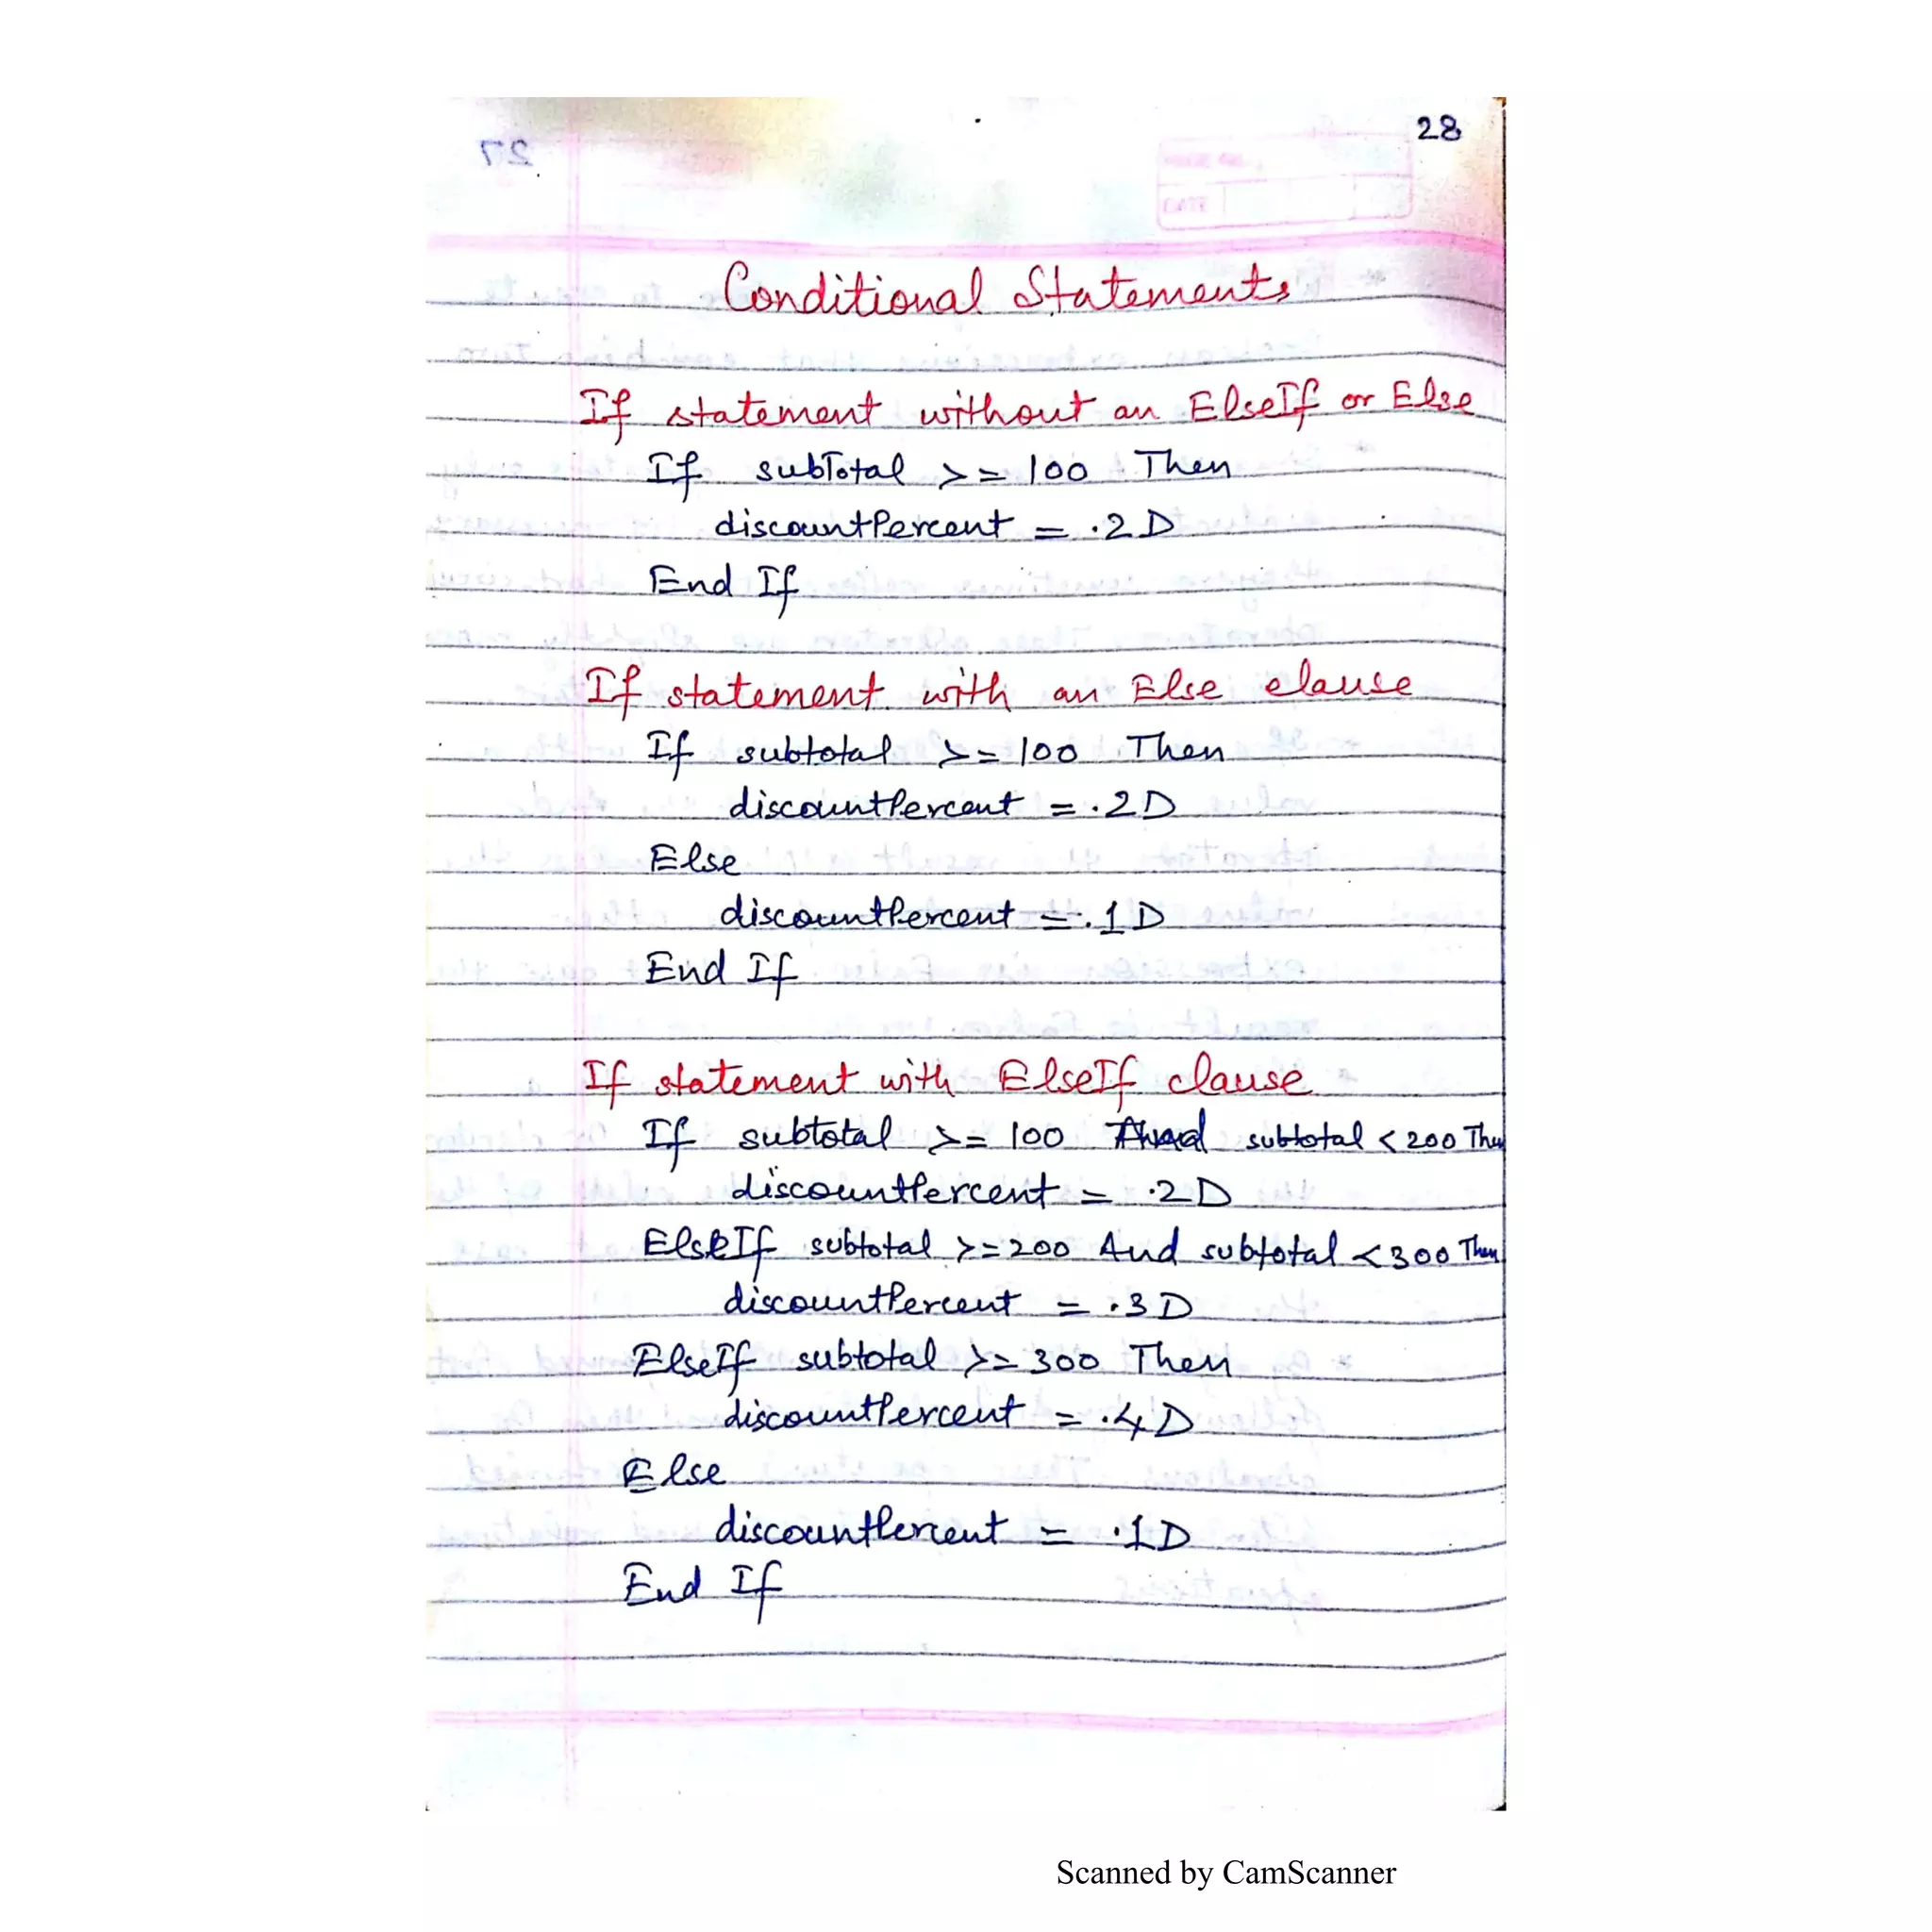 28
27
DATE
Conditional Statements
If statement without an ElseIf or Else
If subTotal >= 100 Then
discountPercent = .2D
End If
If statement with an Else clause
If subtotal >= 100 Then
discountPercent = .2D
Else
discountPercent = .1D
End If
If statement with ElseIf clause
If subtotal >= 100 And subtotal < 200 Then
discountPercent = .2D
ElseIf subtotal >= 200 And subtotal < 300 Then
discountPercent = .3D
ElseIf subtotal >= 300 Then
discountPercent = .4D
Else
discountPercent = .1D
End If
Scanned by CamScanner